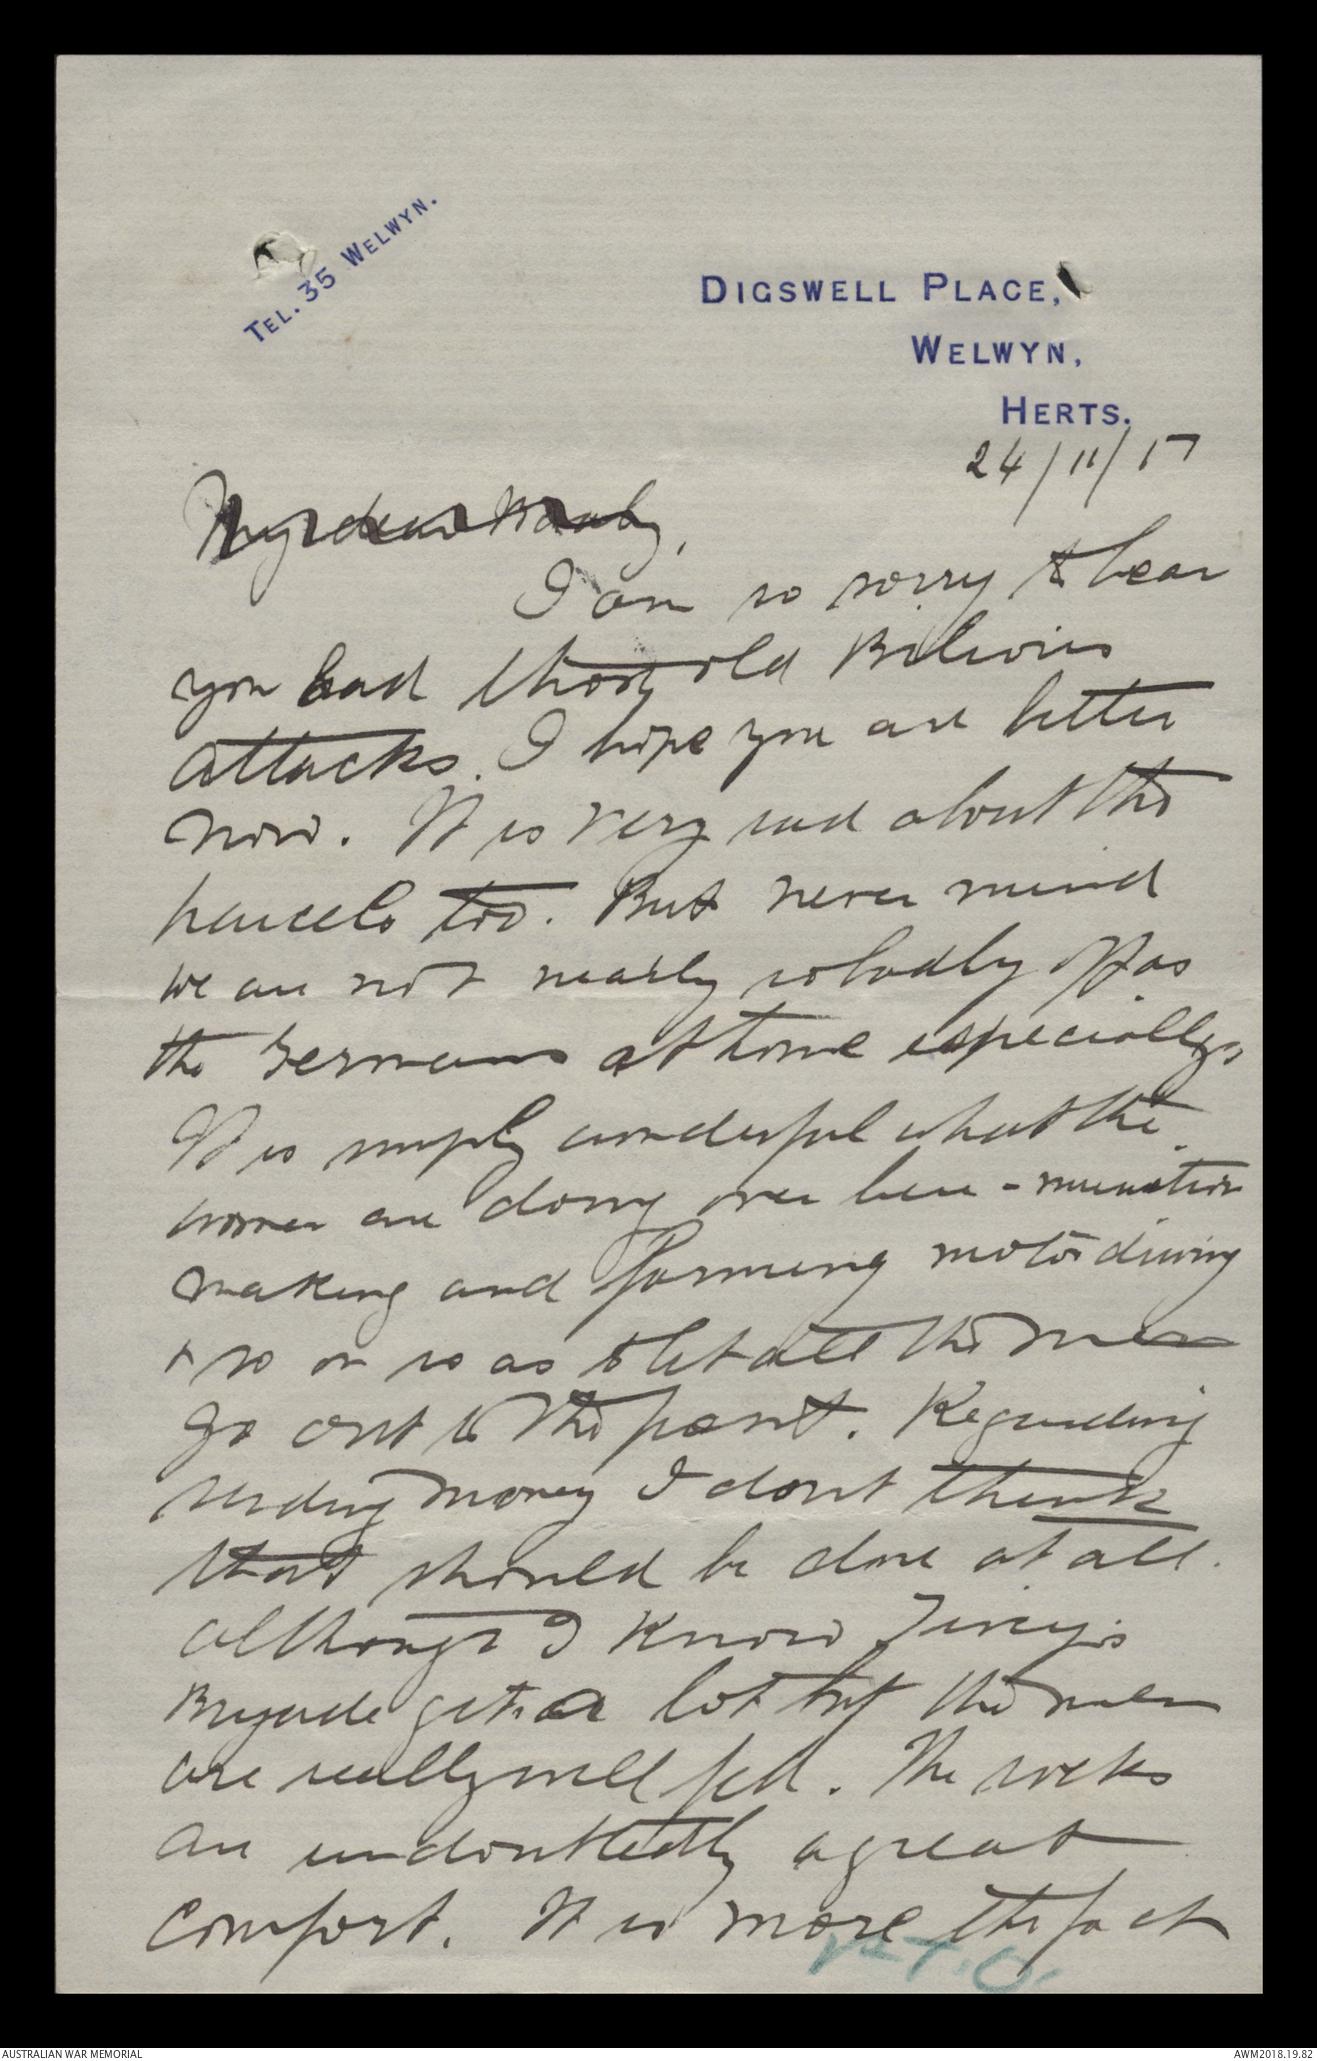 TEL. 35 WELWYN.
DIGSWELL PLACE,
WELWYN,
HERTS.
24/11/17
My dear
I am so sorry to hear
you had those old Bilious
attacks. I hope you are better
now. It is very sad about the
parcels too. But never mind
we are not nearly so badly off as
the Germans at home especially.
It is simply wonderful what the
women are doing over here - munition
making and farming motor driving
+ so on so as to let all the men
go out to the front. Regarding
sending money I don't think
that should be done at all.
although I know Tivey's
Brigade gets a lot but the men
are really well fed. The socks
are undoubtedly a great
comfort. It is more the fact
P.T.O.
AUSTRALIAN WAR MEMORIAL
AWM2018.19.82